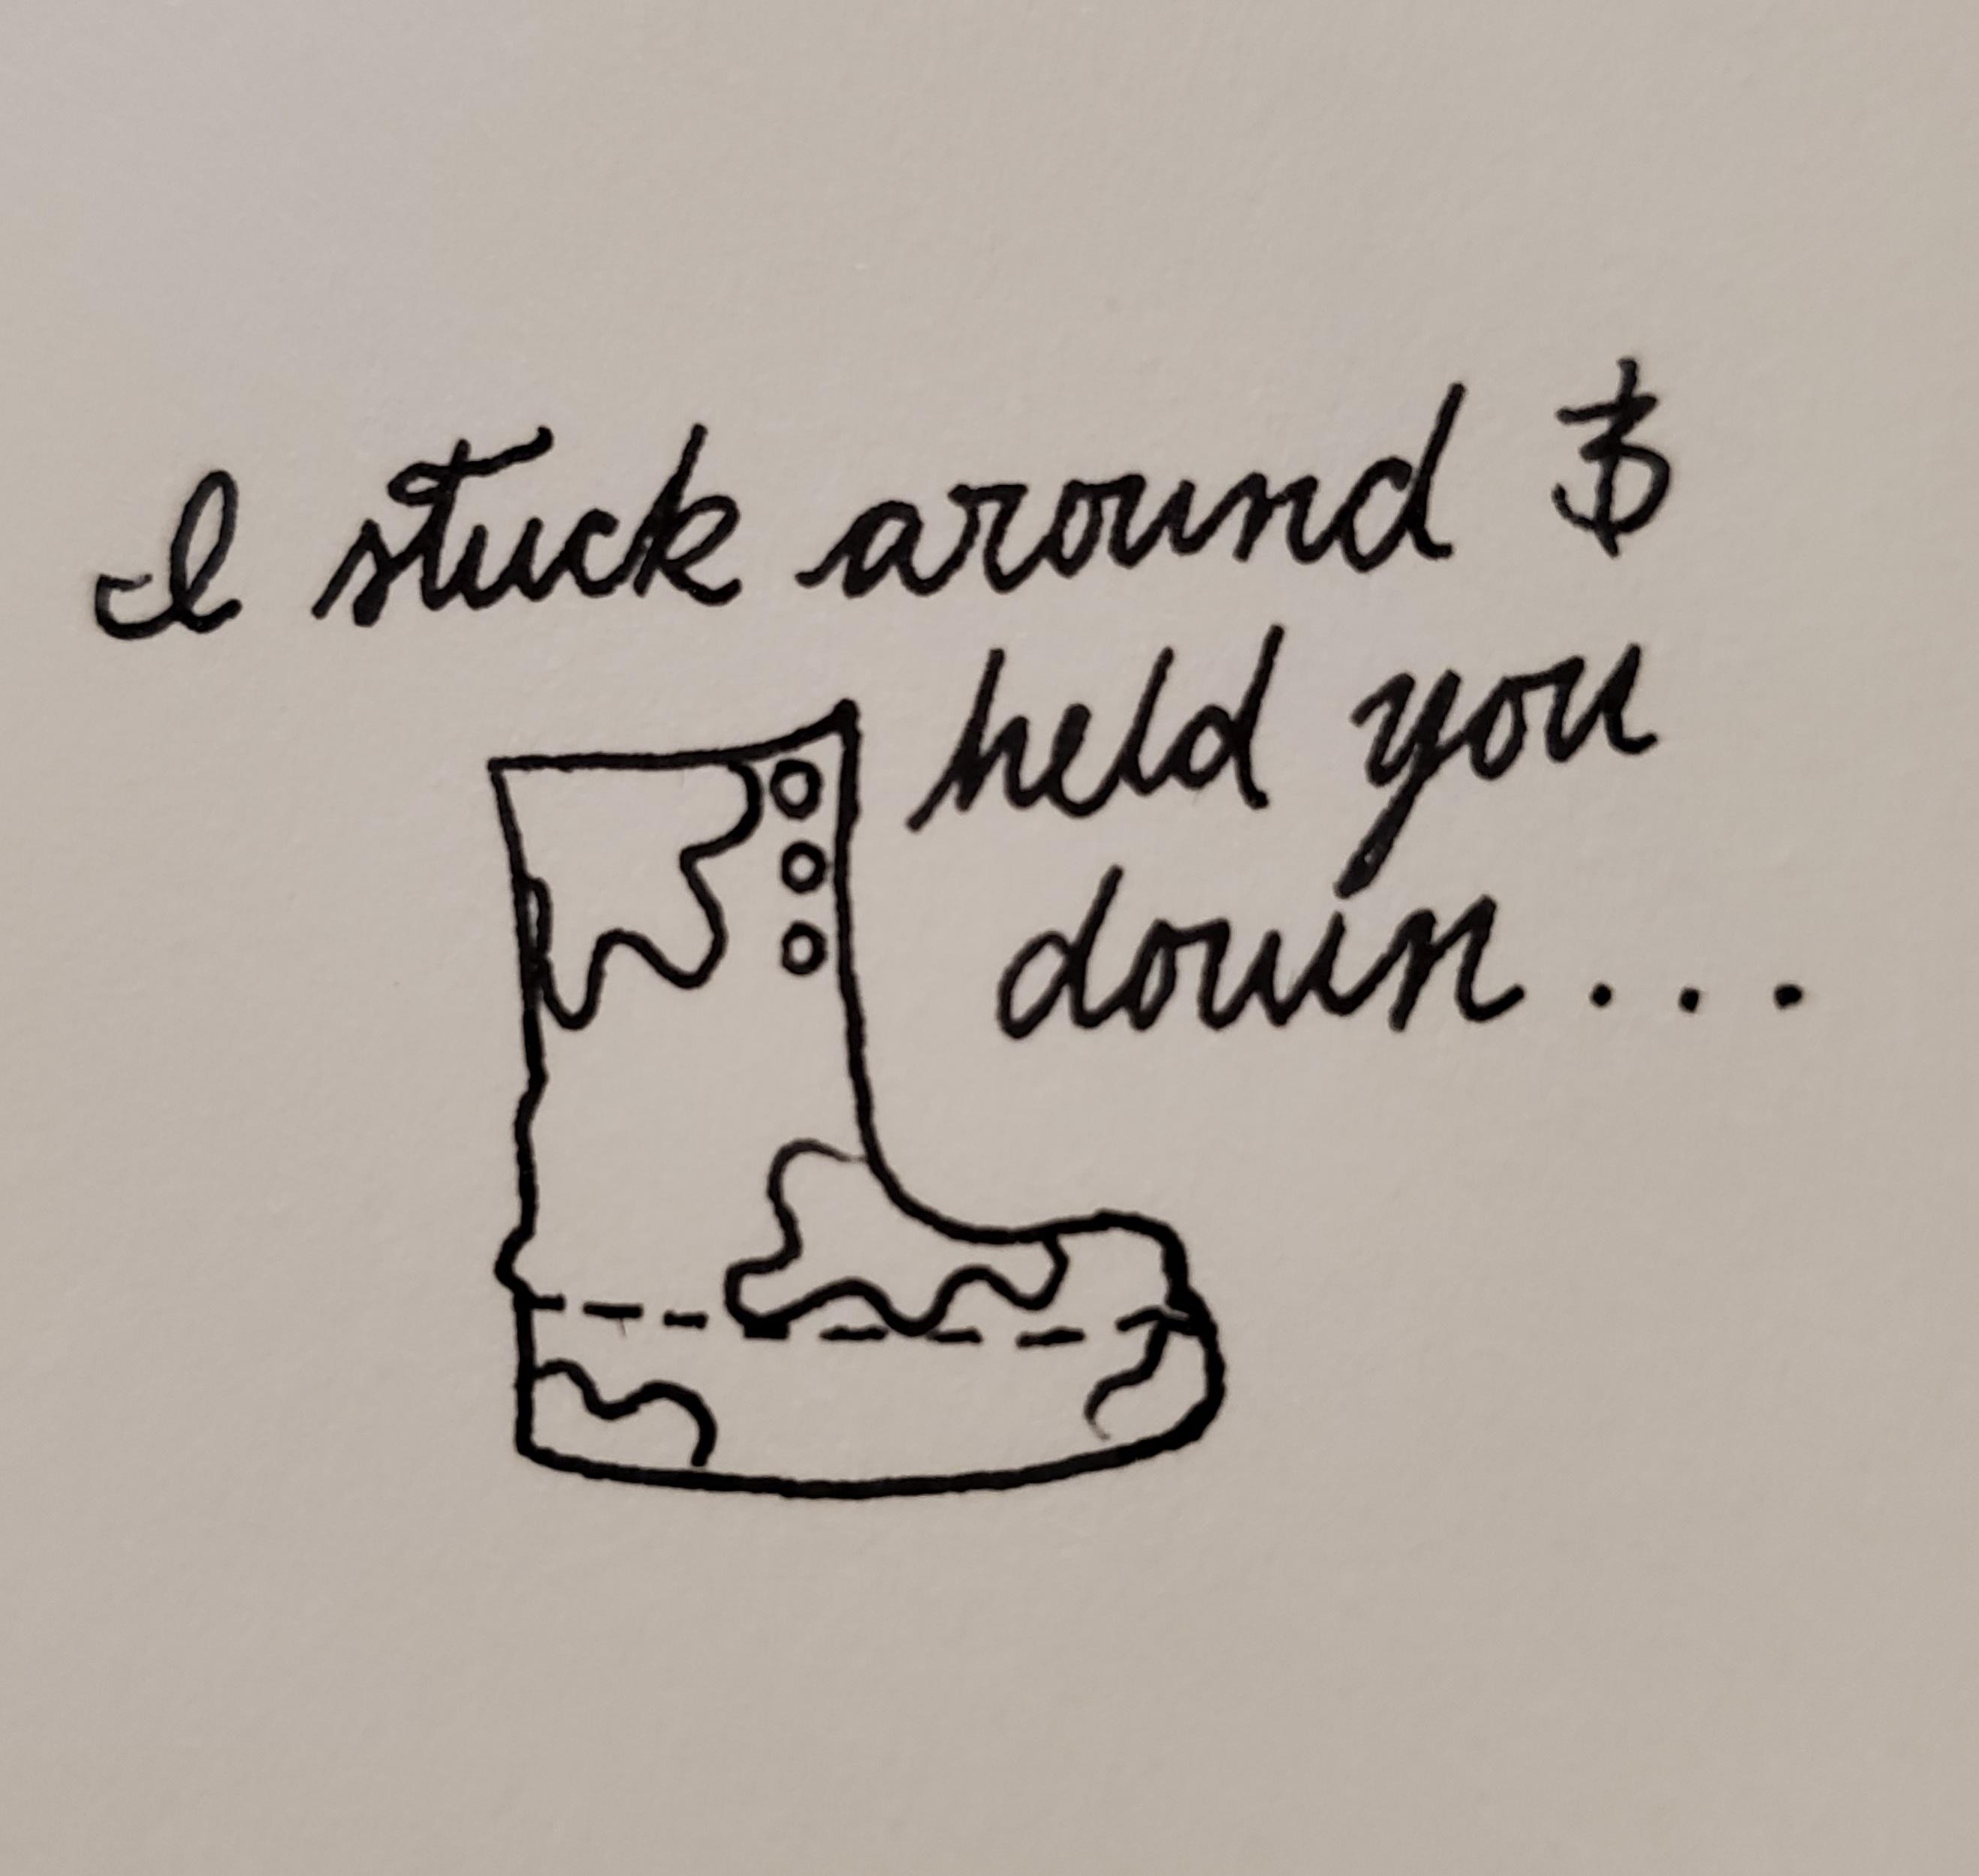 I stuck around &
held you
down...